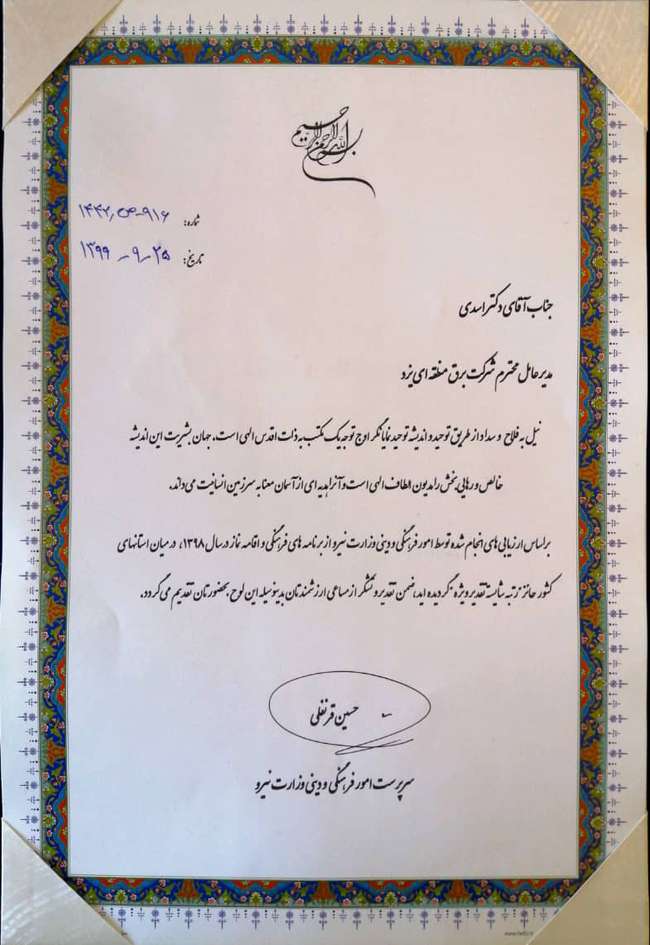 بسم الله الرحمن الرحیم
شماره: ۹۱۶-ص/۱۴۴۲
تاریخ: ۲۵-۹-۱۳۹۹
جناب آقای دکتر اسدی
مدیر عامل محترم شرکت برق منطقه ای یزد
نیل به فلاح و سداد از طریق توحید و اندیشه توحید نمایانگر اوج توجه یک مکتب به ذات اقدس الهی است. جهان بشریت این اندیشه
خالص و رهایی بخش را مدیون الطاف الهی است و آنرا هدیه ای از آسمان معنا به سرزمین انسانیت می داند.
بر اساس ارزیابی های انجام شده توسط امور فرهنگی و دینی وزارت نیرو از برنامه های فرهنگی و اقامه نماز در سال ۱۳۹۸، در میان استانهای
کشور حائز رتبه شایسته تقدیر ویژه گردیده اید، ضمن تقدیر و تشکر از مساعی ارزشمندتان بدینوسیله این لوح بحضورتان تقدیم می گردد.
حسین قرنفلی
سرپرست امور فرهنگی و دینی وزارت نیرو